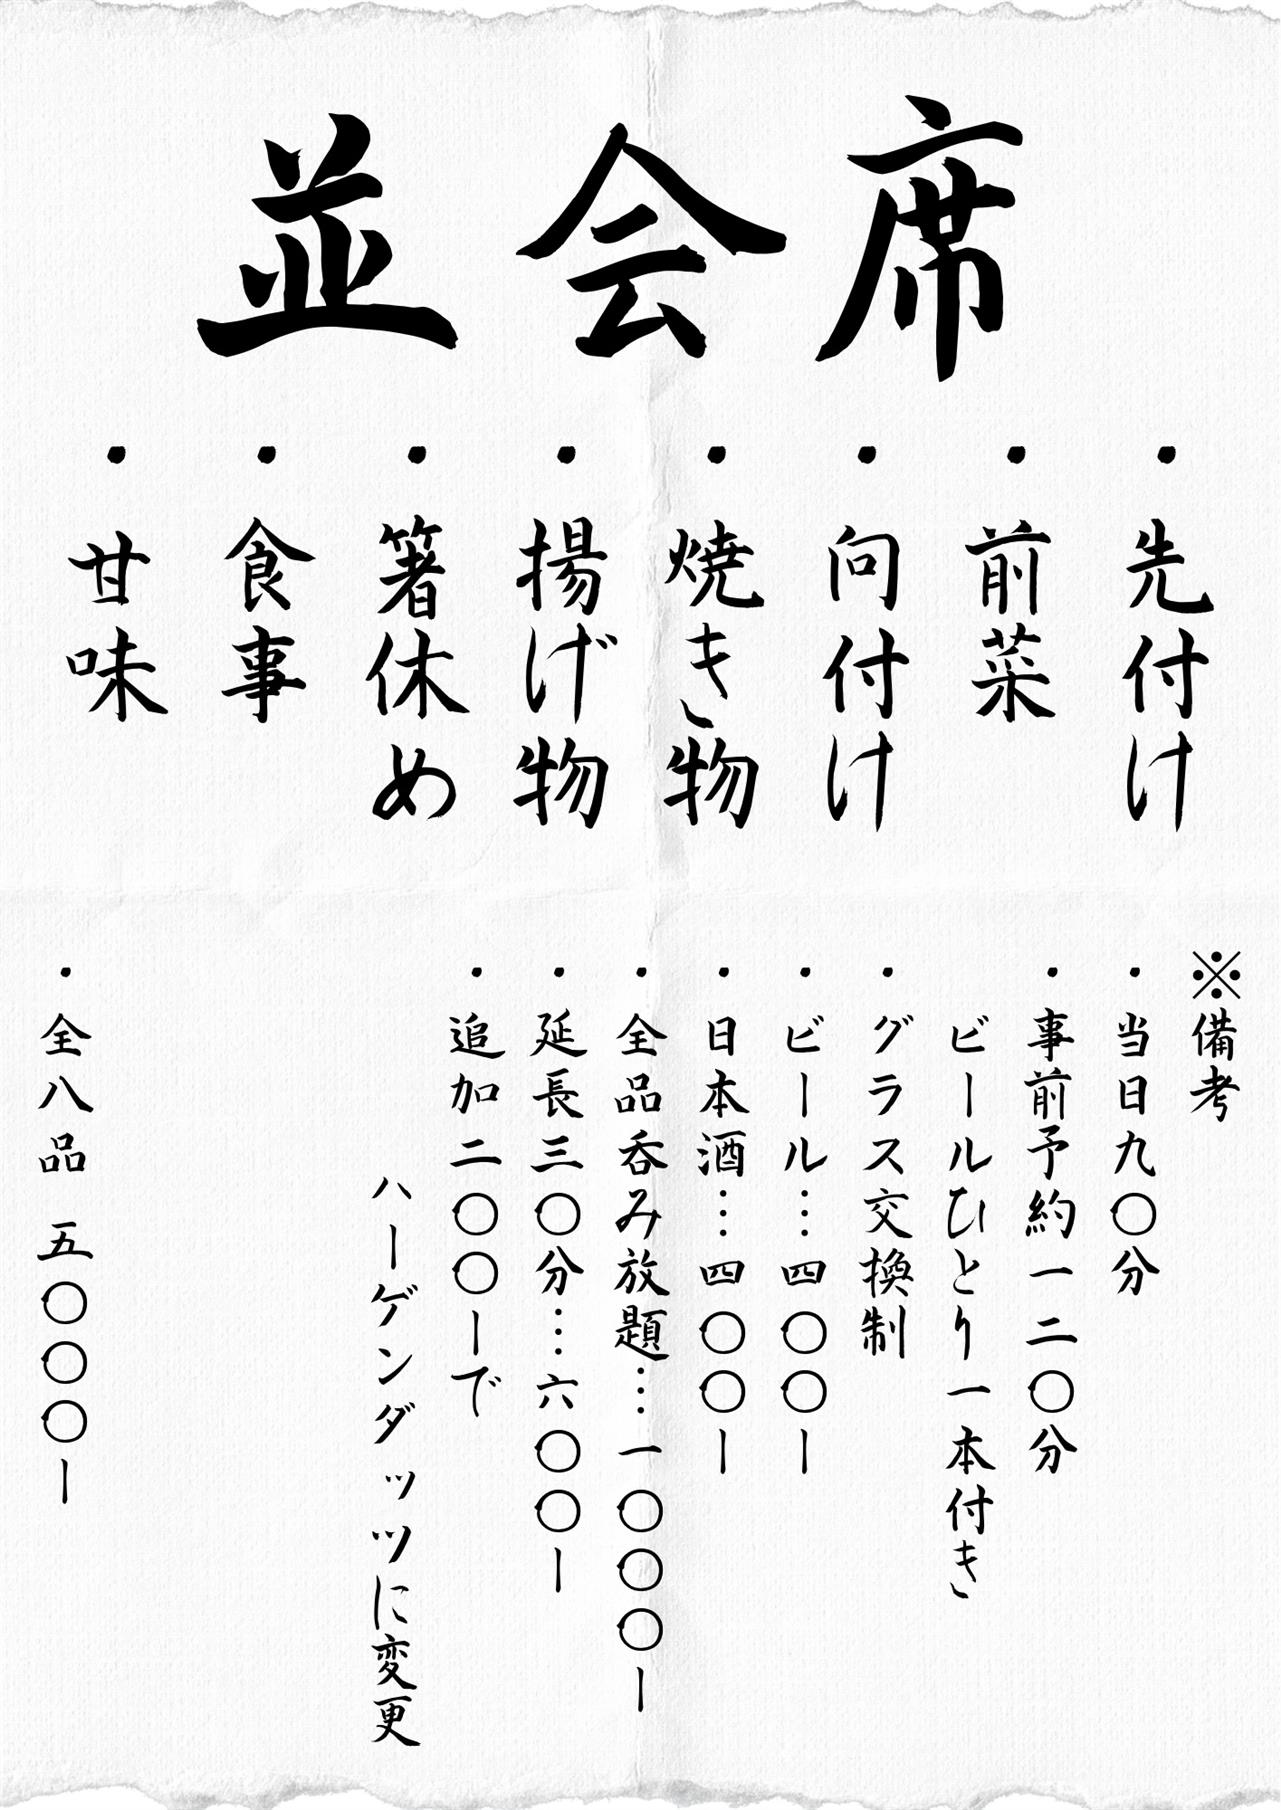 並会席
・先付け
・前菜
・向付け
・焼き物
・揚げ物
・箸休め
・食事
・甘味
※備考
・当日九〇分
・事前予約一二〇分
ビールひとり一本付き
・グラス交換制
・ビール…四〇〇ー
・日本酒…四〇〇ー
・全品呑み放題…一〇〇〇ー
・延長三〇分…六〇〇ー
・追加二〇〇ーで
ハーゲンダッツに変更
・全八品 五〇〇〇ー